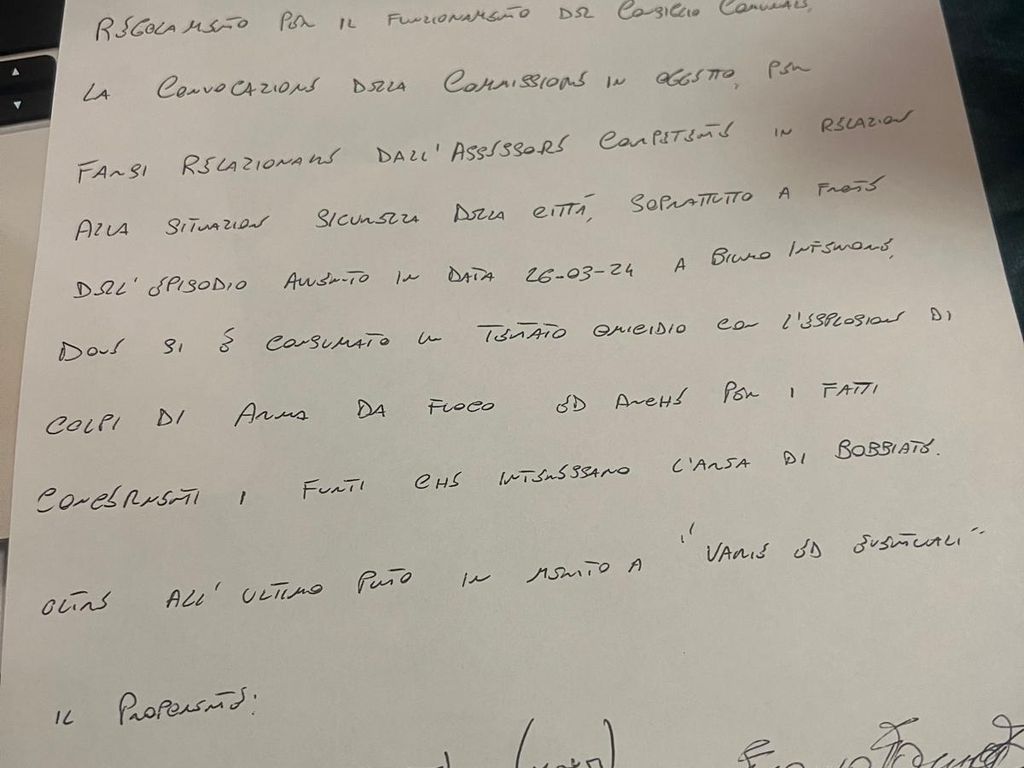 REGOLAMENTO PER IL FUNZIONAMENTO DEL CONSIGLIO COMUNALE,
LA CONVOCAZIONE DELLA COMMISSIONE IN OGGETTO, PER
FARSI RELAZIONARE DALL'ASSESSORE COMPETENTE IN RELAZION
ALLA SITUAZION SICUREZZA DELLA CITTÀ, SOPRATTUTTO A FRONTE
DELL'EPISODIO AVVENUTO IN DATA 26-03-24 A BIUMO INFERIORE,
DOVE SI È CONSUMATO UN TENTATO OMICIDIO CON L'ESPLOSION DI
COLPI DI ARMA DA FUOCO ED ANCHE PER I FATTI
CONCERNENTI I FURTI CHE INTERESSANO L'AREA DI BOBBIATE.
OLTRE ALL'ULTIMO PUNTO IN MERITO A "VARIE ED EVENTUALI"
IL PROPONENTE: